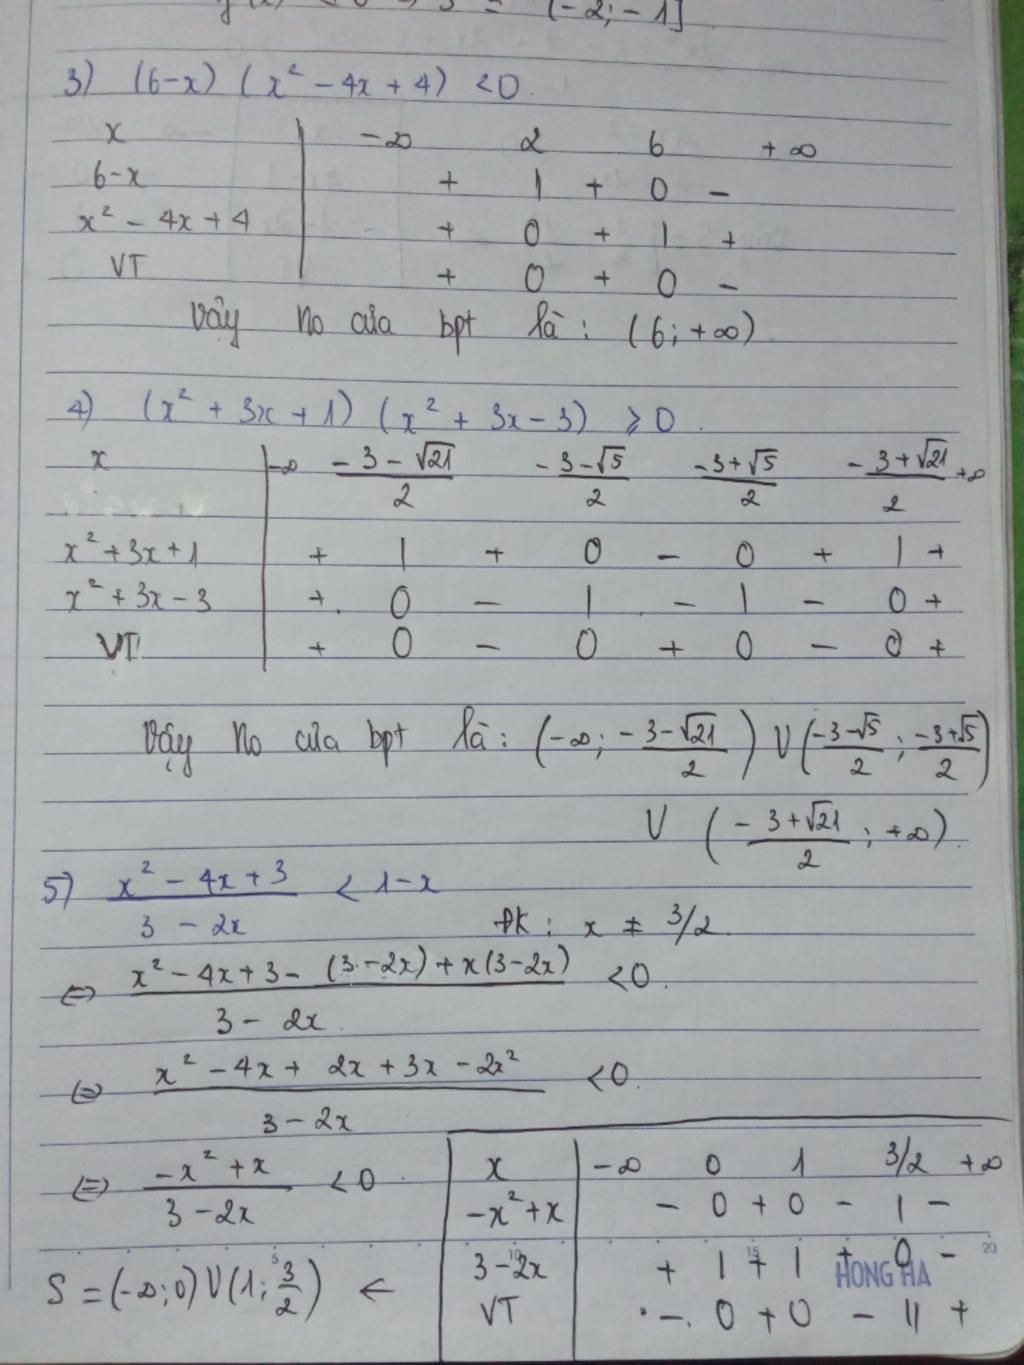 (-2;-1]
3) (6-x) (x² - 4x + 4) < 0.
x | -∞ 2 6 +∞
6-x | + | + 0 -
x² - 4x + 4 | + 0 + | +
VT | + 0 + 0 -
Vậy No của bpt là : (6; +∞)
4) (x² + 3x + 1) (x² + 3x - 3) ⩾ 0.
x | -∞ (-3-√21)/2 (-3-√5)/2 (-3+√5)/2 (-3+√21)/2 +∞
x² + 3x + 1 | + | + 0 - 0 + | +
x² + 3x - 3 | + 0 - | - | - 0 +
VT | + 0 - 0 + 0 - 0 +
Vậy No của bpt là : (-∞; (-3-√21)/2) U ((-3-√5)/2; (-3+√5)/2)
U ((-3+√21)/2; +∞).
5) (x² - 4x + 3)/(3 - 2x) < 1-x
ĐK : x ≠ 3/2.
⇔ (x² - 4x + 3 - (3 - 2x) + x(3-2x))/(3 - 2x) < 0.
⇔ (x² - 4x + 2x + 3x - 2x²)/(3 - 2x) < 0.
⇔ (-x² + x)/(3 - 2x) < 0.
x | -∞ 0 1 3/2 +∞
-x² + x | - 0 + 0 - | -
3 - 2x | + | + | + 0 -
VT | - 0 + 0 - || +
S = (-∞;0) U (1; 3/2) ←
5 10 15 20
HONG HA